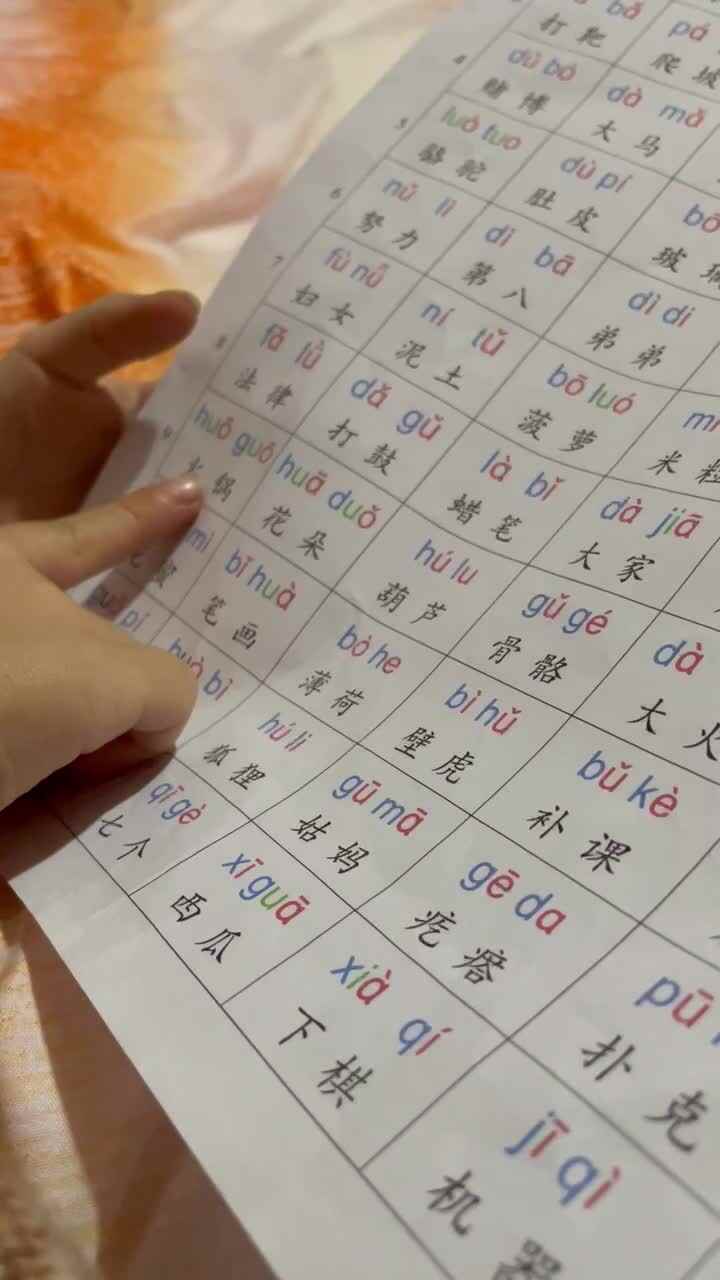 bǎ pá
打靶 爬坡
4 dǔ bó dà mǎ
赌博 大马
5 luò tuo dù pí bō
骆驼 肚皮 玻璃
6 nǔ lì dì bā dì di
努力 第八 弟弟
7 fù nǚ ní tǔ bō luó mǐ
妇女 泥土 菠萝 米粒
8 fǎ lǜ dǎ gǔ là bǐ dà jiā
法律 打鼓 蜡笔 大家
9 huǒ guō huā duǒ hú lu gǔ gé dà
火锅 花朵 葫芦 骨骼 大火
mì bǐ huà bò he bì hǔ bǔ kè
蜜 笔画 薄荷 壁虎 补课
pí huò bì hú li gū mā gē da pū
狐狸 姑妈 疙瘩 扑克
qī gè xī guā xià qí jī qì
七个 西瓜 下棋 机器